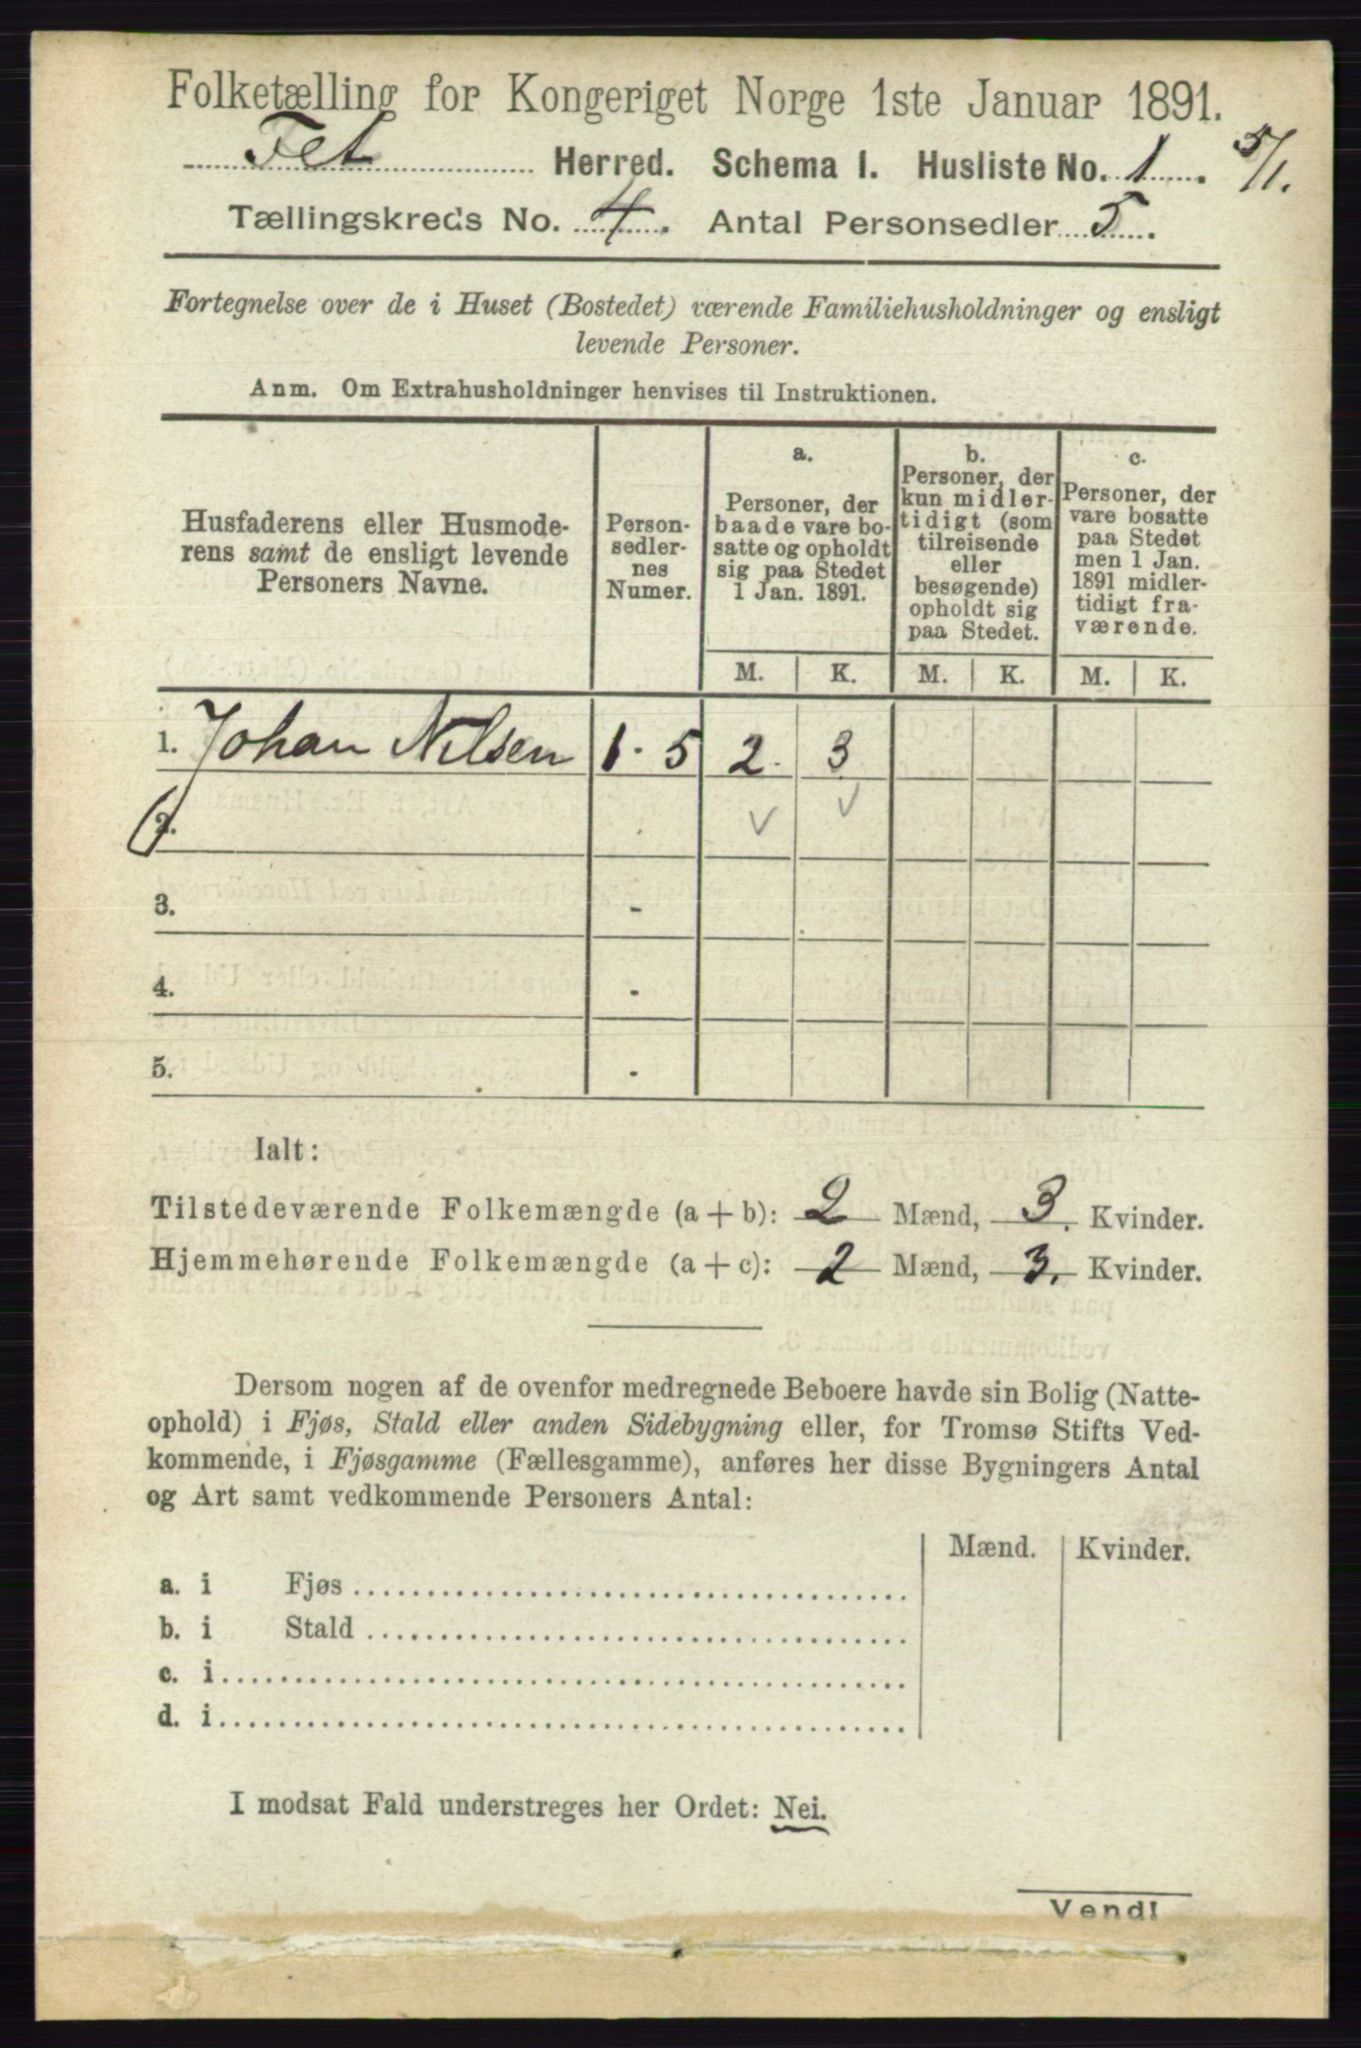 Folketælling for Kongeriget Norge 1ste Januar 1891.
Fet Herred. Schema I. Husliste No. 1. 5/1.
Tællingskreds No. 4. Antal Personsedler 5.
Fortegnelse over de i Huset (Bostedet) værende Familiehusholdninger og ensligt
levende Personer.
Anm. Om Extrahusholdninger henvises til Instruktionen.
Husfaderens eller Husmode-
rens samt de ensligt levende
Personers Navne.
Person-
sedler-
nes
Numer.
a.
Personer, der
baade vare bo-
satte og opholdt
sig paa Stedet
1 Jan. 1891.
b.
Personer, der
kun midler-
tidigt (som
tilreisende
eller
besøgende)
opholdt sig
paa Stedet.
c.
Personer, der
vare bosatte
paa Stedet
men 1 Jan.
1891 midler-
tidigt fra-
værende.
M. K. M. K. M. K.
1. Johan Nilsen 1 - 5 2 3
2.
3. -
4. -
5. -
Ialt:
Tilstedeværende Folkemængde (a + b): 2 Mænd, 3. Kvinder.
Hjemmehørende Folkemængde (a + c): 2 Mænd, 3. Kvinder.
Dersom nogen af de ovenfor medregnede Beboere havde sin Bolig (Natte-
ophold) i Fjøs, Stald eller anden Sidebygning eller, for Tromsø Stifts Ved-
kommende, i Fjøsgamme (Fællesgamme), anføres her disse Bygningers Antal
og Art samt vedkommende Personers Antal:
Mænd. Kvinder.
a. i Fjøs
b. i Stald
c. i
d. i
I modsat Fald understreges her Ordet: Nei.
Vend!